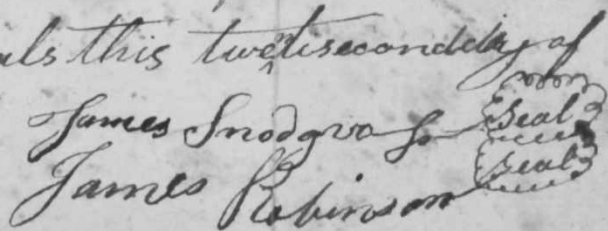 als this twentisecond day of
James Snodgrass seal
James Robinson seal